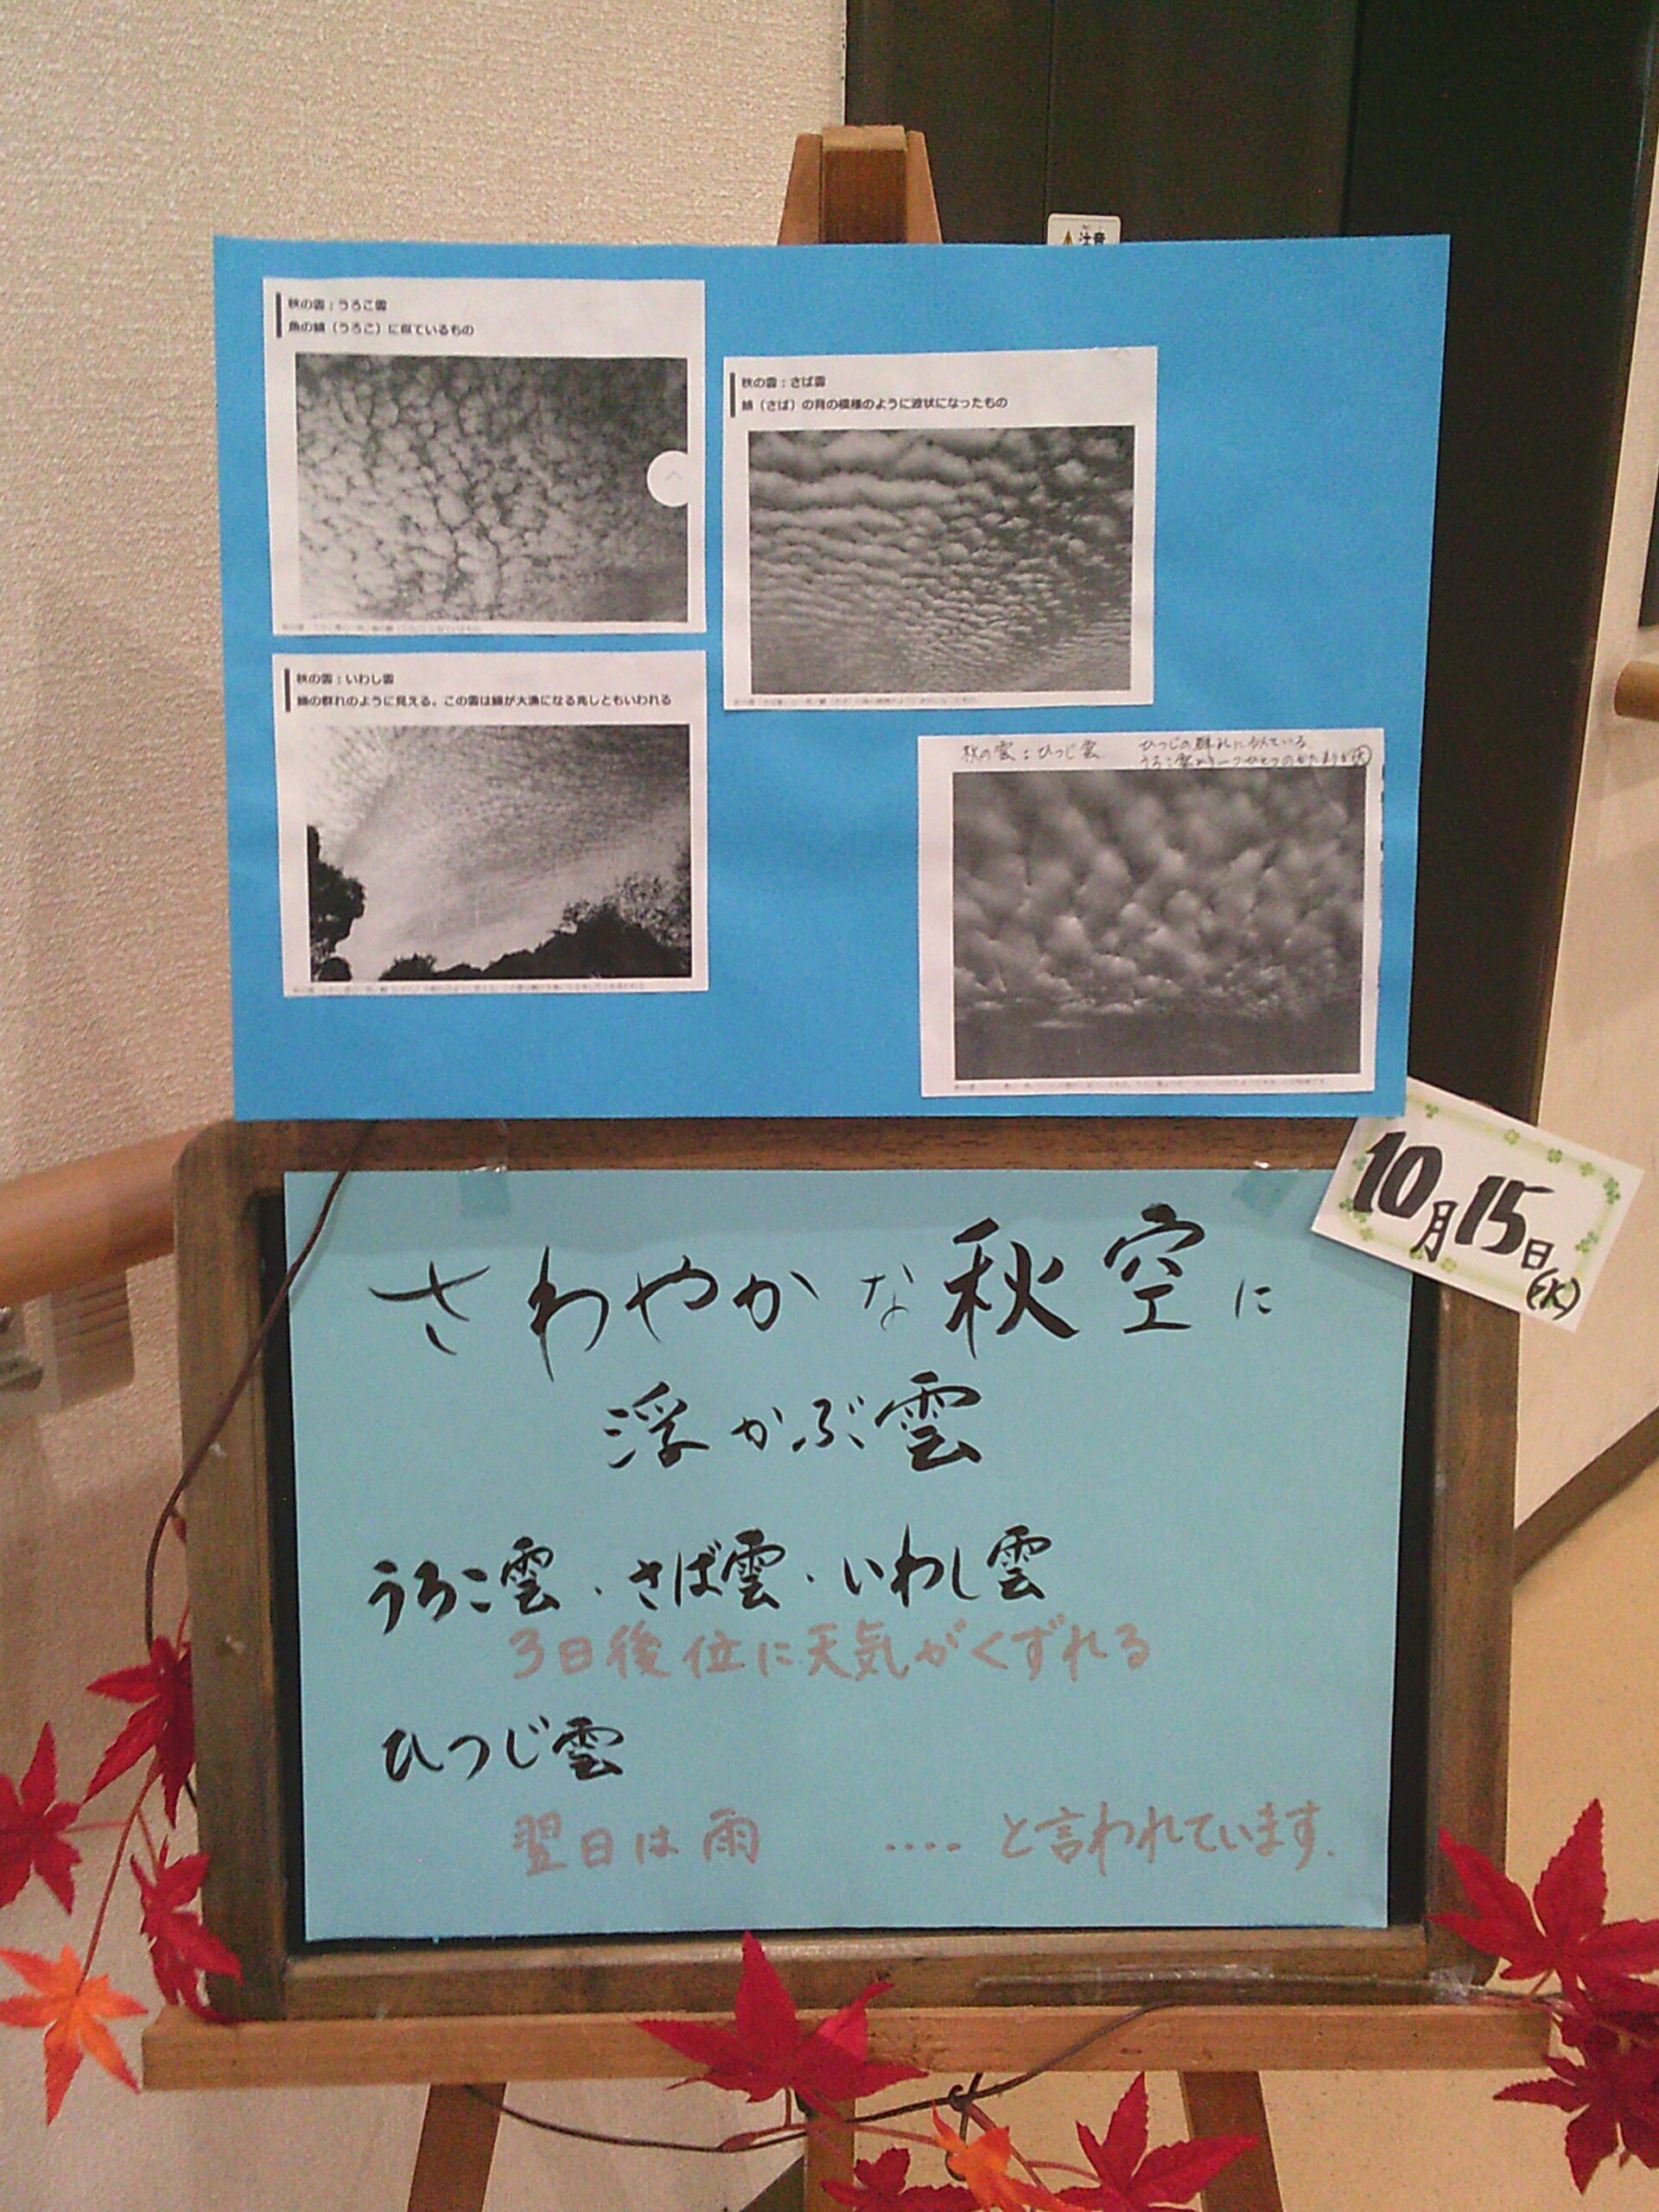 注意
秋の雲：うろこ雲
魚の鱗（うろこ）に似ているもの
秋の雲：さば雲
鯖（さば）の背の模様のように波状になったもの
秋の雲：いわし雲
鰯の群れのように見える。この雲は鰯が大漁になる兆しともいわれる
秋の雲：ひつじ雲
ひつじの群れに似ている
うろこ雲より一つひとつのかたまりが大
10月15日(水)
さわやかな秋空に
浮かぶ雲
うろこ雲・さば雲・いわし雲
3日後位に天気がくずれる
ひつじ雲
翌日は雨 ････と言われています.